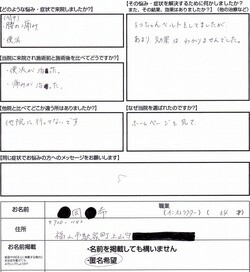 【どのような悩み・症状で来院しましたか？】
その悩み・症状を解決するために何かしましたか？
また、その結果、効果はありましたか？（他の治療など）
・腰の痛み
・便秘
こつばんベルトをしてましたが
あまり効果は わかりませんでした。
【当院に来院され施術前と施術後を比べてどうですか？】
・便秘が治った。
・痛みが治った。
【他院と比べてどこか違う所はありましたか】
【なぜ当院を選ばれたのですか？】
他院に行ってないです
ホームページを見て
【同じ症状でお悩みの方へのメッセージをお願いします】
お名前
岡 希
職業
住所
福山市駅家町
お名前掲載
・名前を掲載しても構いません
・匿名希望